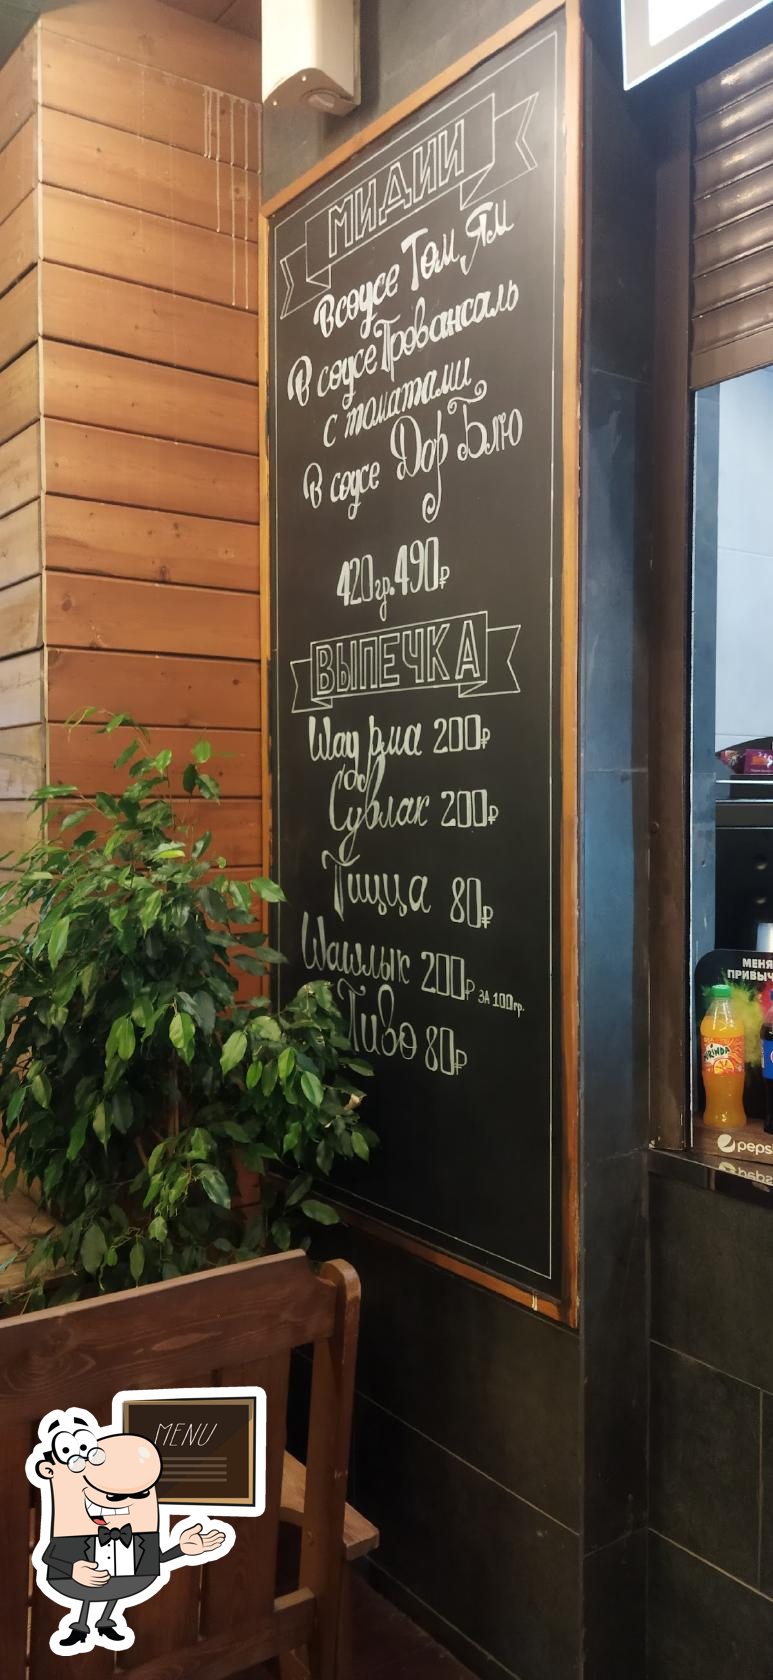 МИДИИ
В соусе Том Ям
В соусе Провансаль
с томатами
В соусе Дор Блю
420гр. 490₽
ВЫПЕЧКА
Шаурма 200₽
Сувлак 200₽
Пицца 80₽
Шашлык 200₽ ЗА 100гр.
Пиво 80₽
МЕНЯ
ПРИВЫЧ
MIRINDA
pepsi
MENU